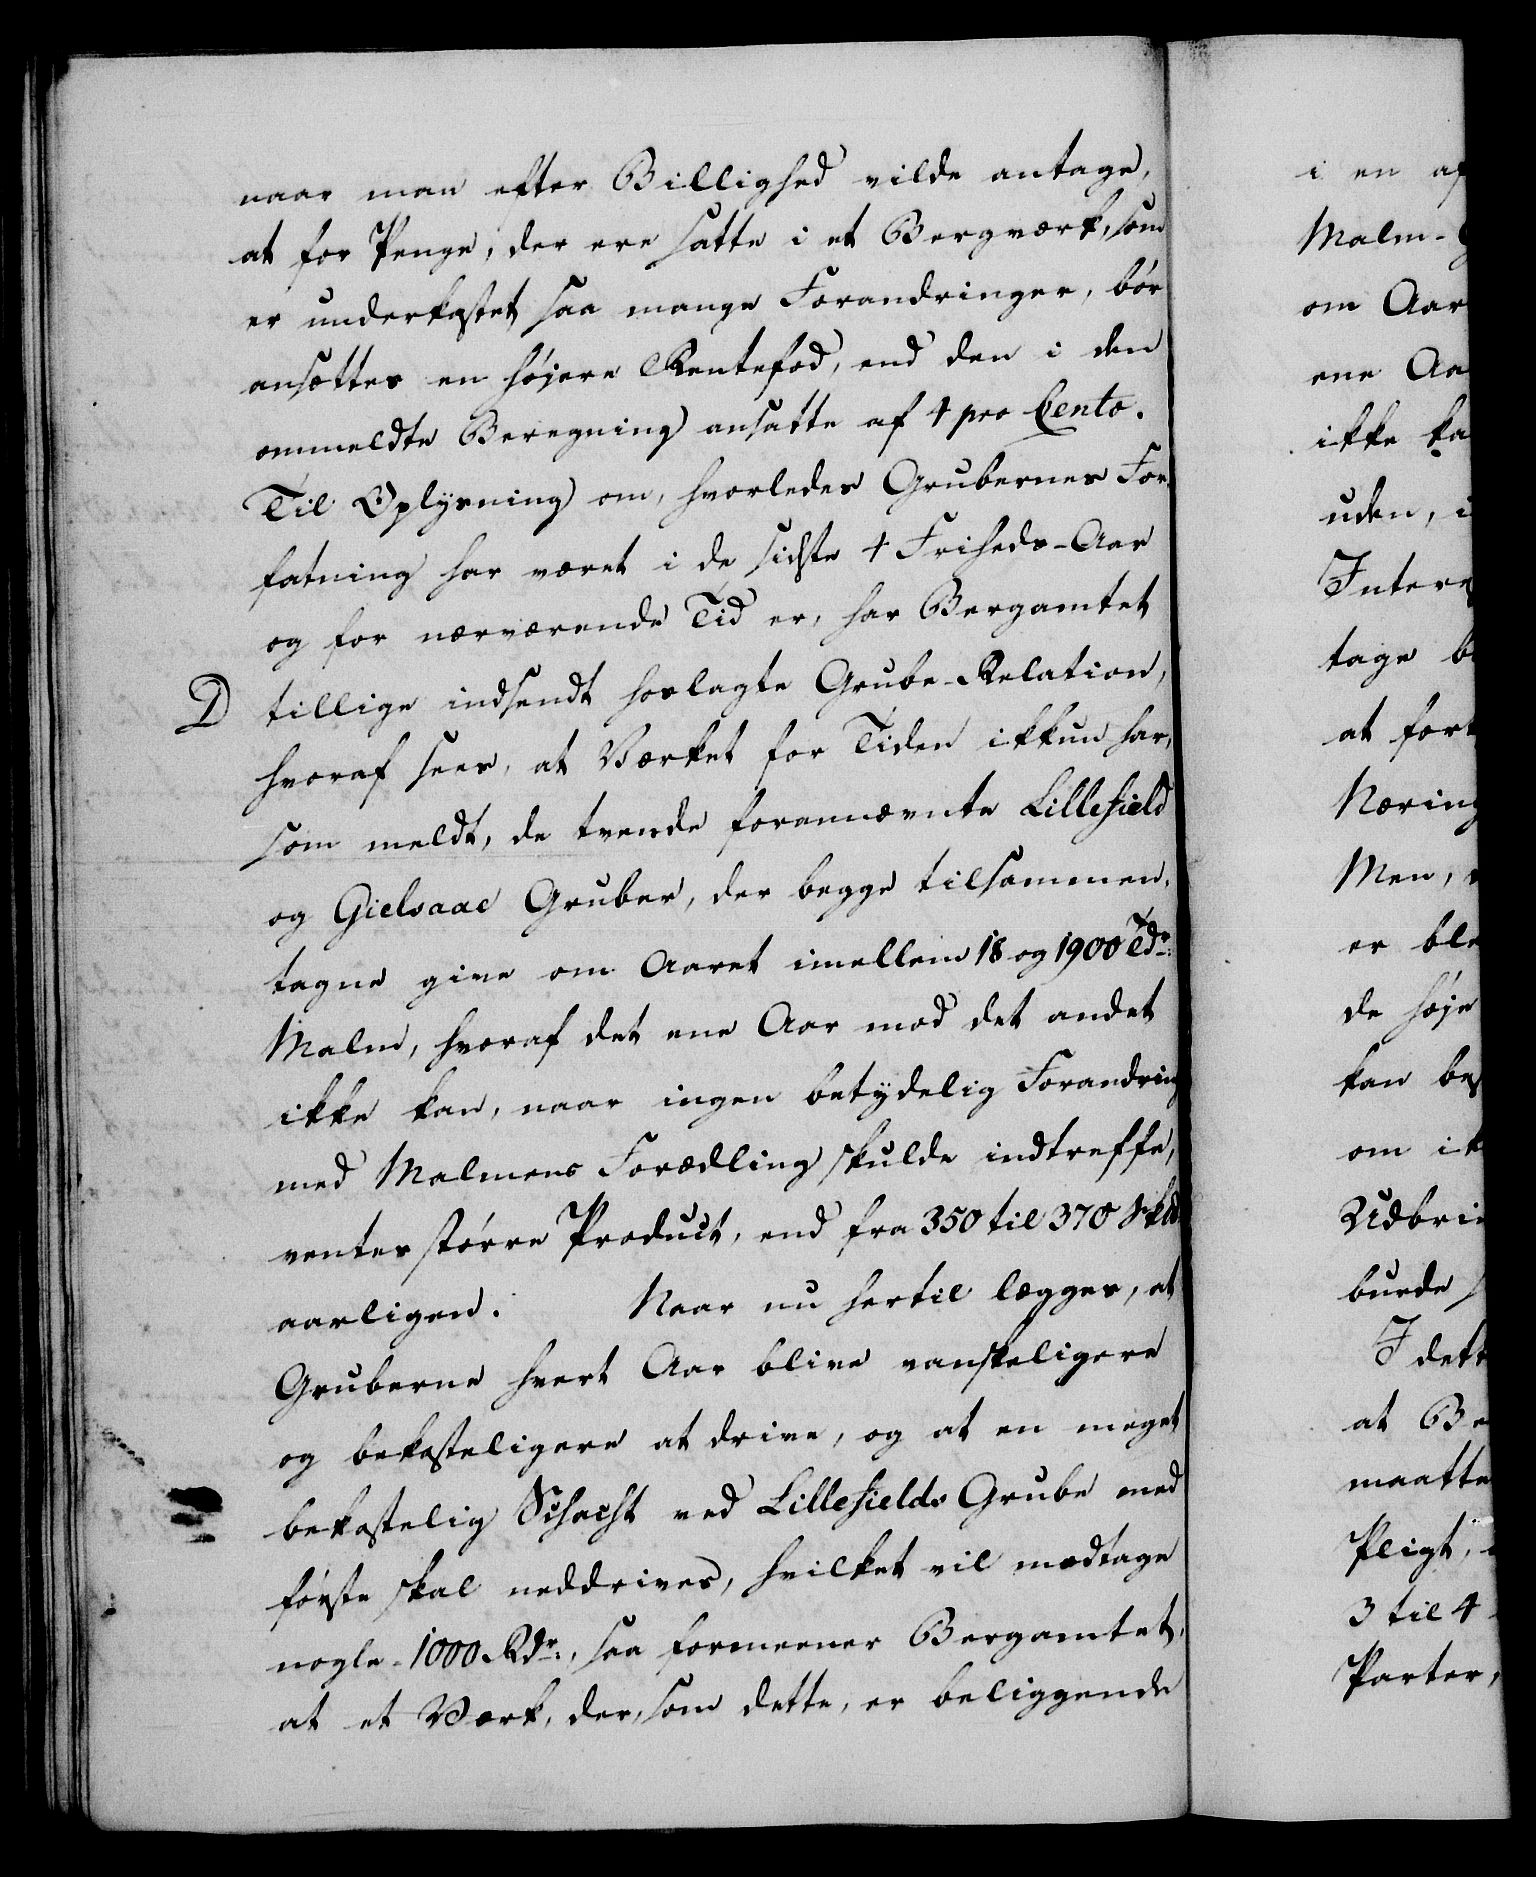 naar man efter Billighed vilde antage,
at for Penge, der ere satte i et Bergværk, som
er underkastet saa mange Forandringer, bør
ansættes en højere Rentefod, end den i den
ommeldte Beregning ansatte af 4 pro Cento.
Til Oplysning om, hvorledes Grubernes For-
fatning har været i de sidste 4 Friheds-Aar
og for nærværende Tid er, har Bergamtet
D tillige indsendt hoslagte Grube-Relation,
hvoraf sees, at Værket for Tiden ikkun har,
som meldt, de tvende forannævnte Lillefield
og Gielsaae Gruber, der begge tilsammen-
tagne give om Aaret imellem 18 og 1900 Tdr:
Malm, hvoraf det ene Aar mod det andet
ikke kan, naar ingen betydelig Forandring
med Malmens Forædling skulde indtreffe,
ventes større Product, end fra 350 til 370 Skd
aarligen. Naar nu hertil lægges, at
Gruberne hvert Aar blive vanskeligere
og bekosteligere at drive, og at en meget
bekostelig Schacht ved Lillefields Grube med
første skal neddrives, hvilket vil medtage
nogle 1000 Rdr:, saa formeener Bergamtet,
at et Værk, der, som dette, er beliggende
i en af
Malm-
om Aar
ene Aa
ikke ka
uden, i
Interes
tage b
at fort
Næring
Men,
er ble
de høje
kan bes
om ik
Udbrin
burde
I dett
at Be
maatte
Pligt,
3 til 4
Parter,